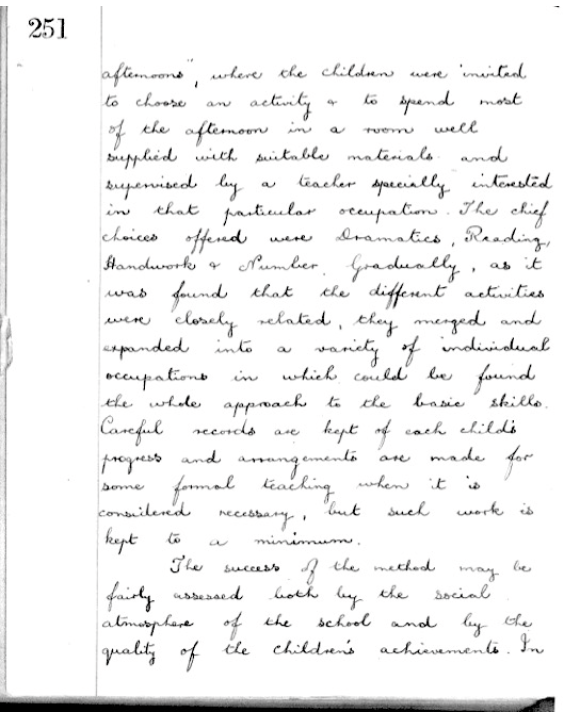 251
afternoons", where the children were invited
to choose an activity & to spend most
of the afternoon in a room well
supplied with suitable materials and
supervised by a teacher specially interested
in that particular occupation. The chief
choices offered were Dramatics, Reading,
Handwork & Number. Gradually, as it
was found that the different activities
were closely related, they merged and
expanded into a variety of individual
occupations in which could be found
the whole approach to the basic skills.
Careful records are kept of each child's
progress and arrangements are made for
some formal teaching when it is
considered necessary, but such work is
kept to a minimum.
The success of the method may be
fairly assessed both by the social
atmosphere of the school and by the
quality of the children's achievements. In